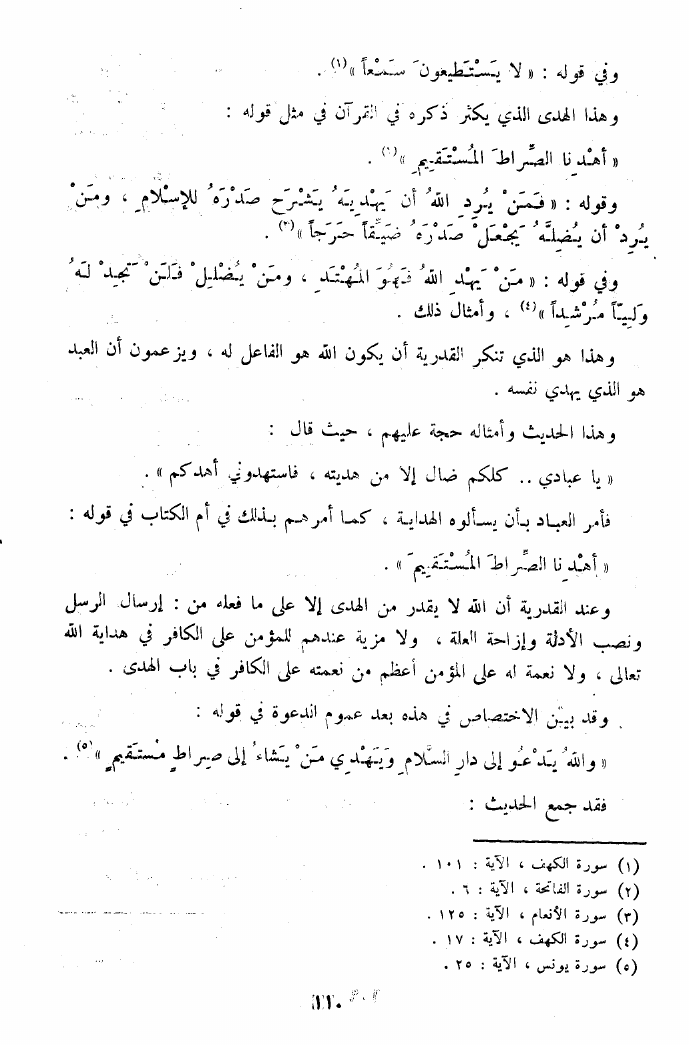 وفي قوله : « لا يَسْتَطيعونَ سَمْعاً »(١) .
وهذا الهدى الذي يكثر ذكره في القرآن في مثل قوله :
« أهْدِنا الصِّراطَ المُسْتَقيمَ »(١) .
وقوله : « فَمَنْ يُرِدِ اللهُ أن يَهْدِيَهُ يَشْرَحْ صَدْرَهُ للإسْلامِ ، ومَنْ
يُرِدْ أن يُضِلَّهُ يَجْعَلْ صَدْرَهُ ضَيِّقاً حَرَجاً »(٣) .
وفي قوله : « مَنْ يَهْدِ اللهُ فَهُوَ المُهْتَدِ ، ومَنْ يُضْلِيلْ فَلَنْ تَجِدَ لَهُ
وَلِيّاً مُرْشِداً »(٤) ، وأمثال ذلك .
وهذا هو الذي تنكر القدرية أن يكون الله هو الفاعل له ، ويزعمون أن العبد
هو الذي يهدي نفسه .
وهذا الحديث وأمثاله حجة عليهم ، حيث قال :
« يا عبادي .. كلكم ضال إلا من هديته ، فاستهدوني أهدكم » .
فأمر العباد بأن يسألوه الهداية ، كما أمرهم بذلك في أم الكتاب في قوله :
« أهْدِنا الصِّراطَ المُسْتَقيمَ » .
وعند القدرية أن الله لا يقدر من الهدى إلا على ما فعله من : إرسال الرسل
ونصب الأدلة وإزاحة العلة ، ولا مزية عندهم للمؤمن على الكافر في هداية الله
تعالى ، ولا نعمة له على المؤمن أعظم من نعمته على الكافر في باب الهدى .
وقد بيّن الاختصاص في هذه بعد عموم الدعوة في قوله :
« واللهُ يَدْعُو إلى دارِ السَّلامِ وَيَهْدي مَنْ يَشاءُ إلى صِراطٍ مُسْتَقيمٍ »(٥) .
فقد جمع الحديث :
(١) سورة الكهف ، الآية : ١٠١ .
(٢) سورة الفاتحة ، الآية : ٦ .
(٣) سورة الأنعام ، الآية : ١٢٥ .
(٤) سورة الكهف ، الآية : ١٧ .
(٥) سورة يونس ، الآية : ٢٥ .